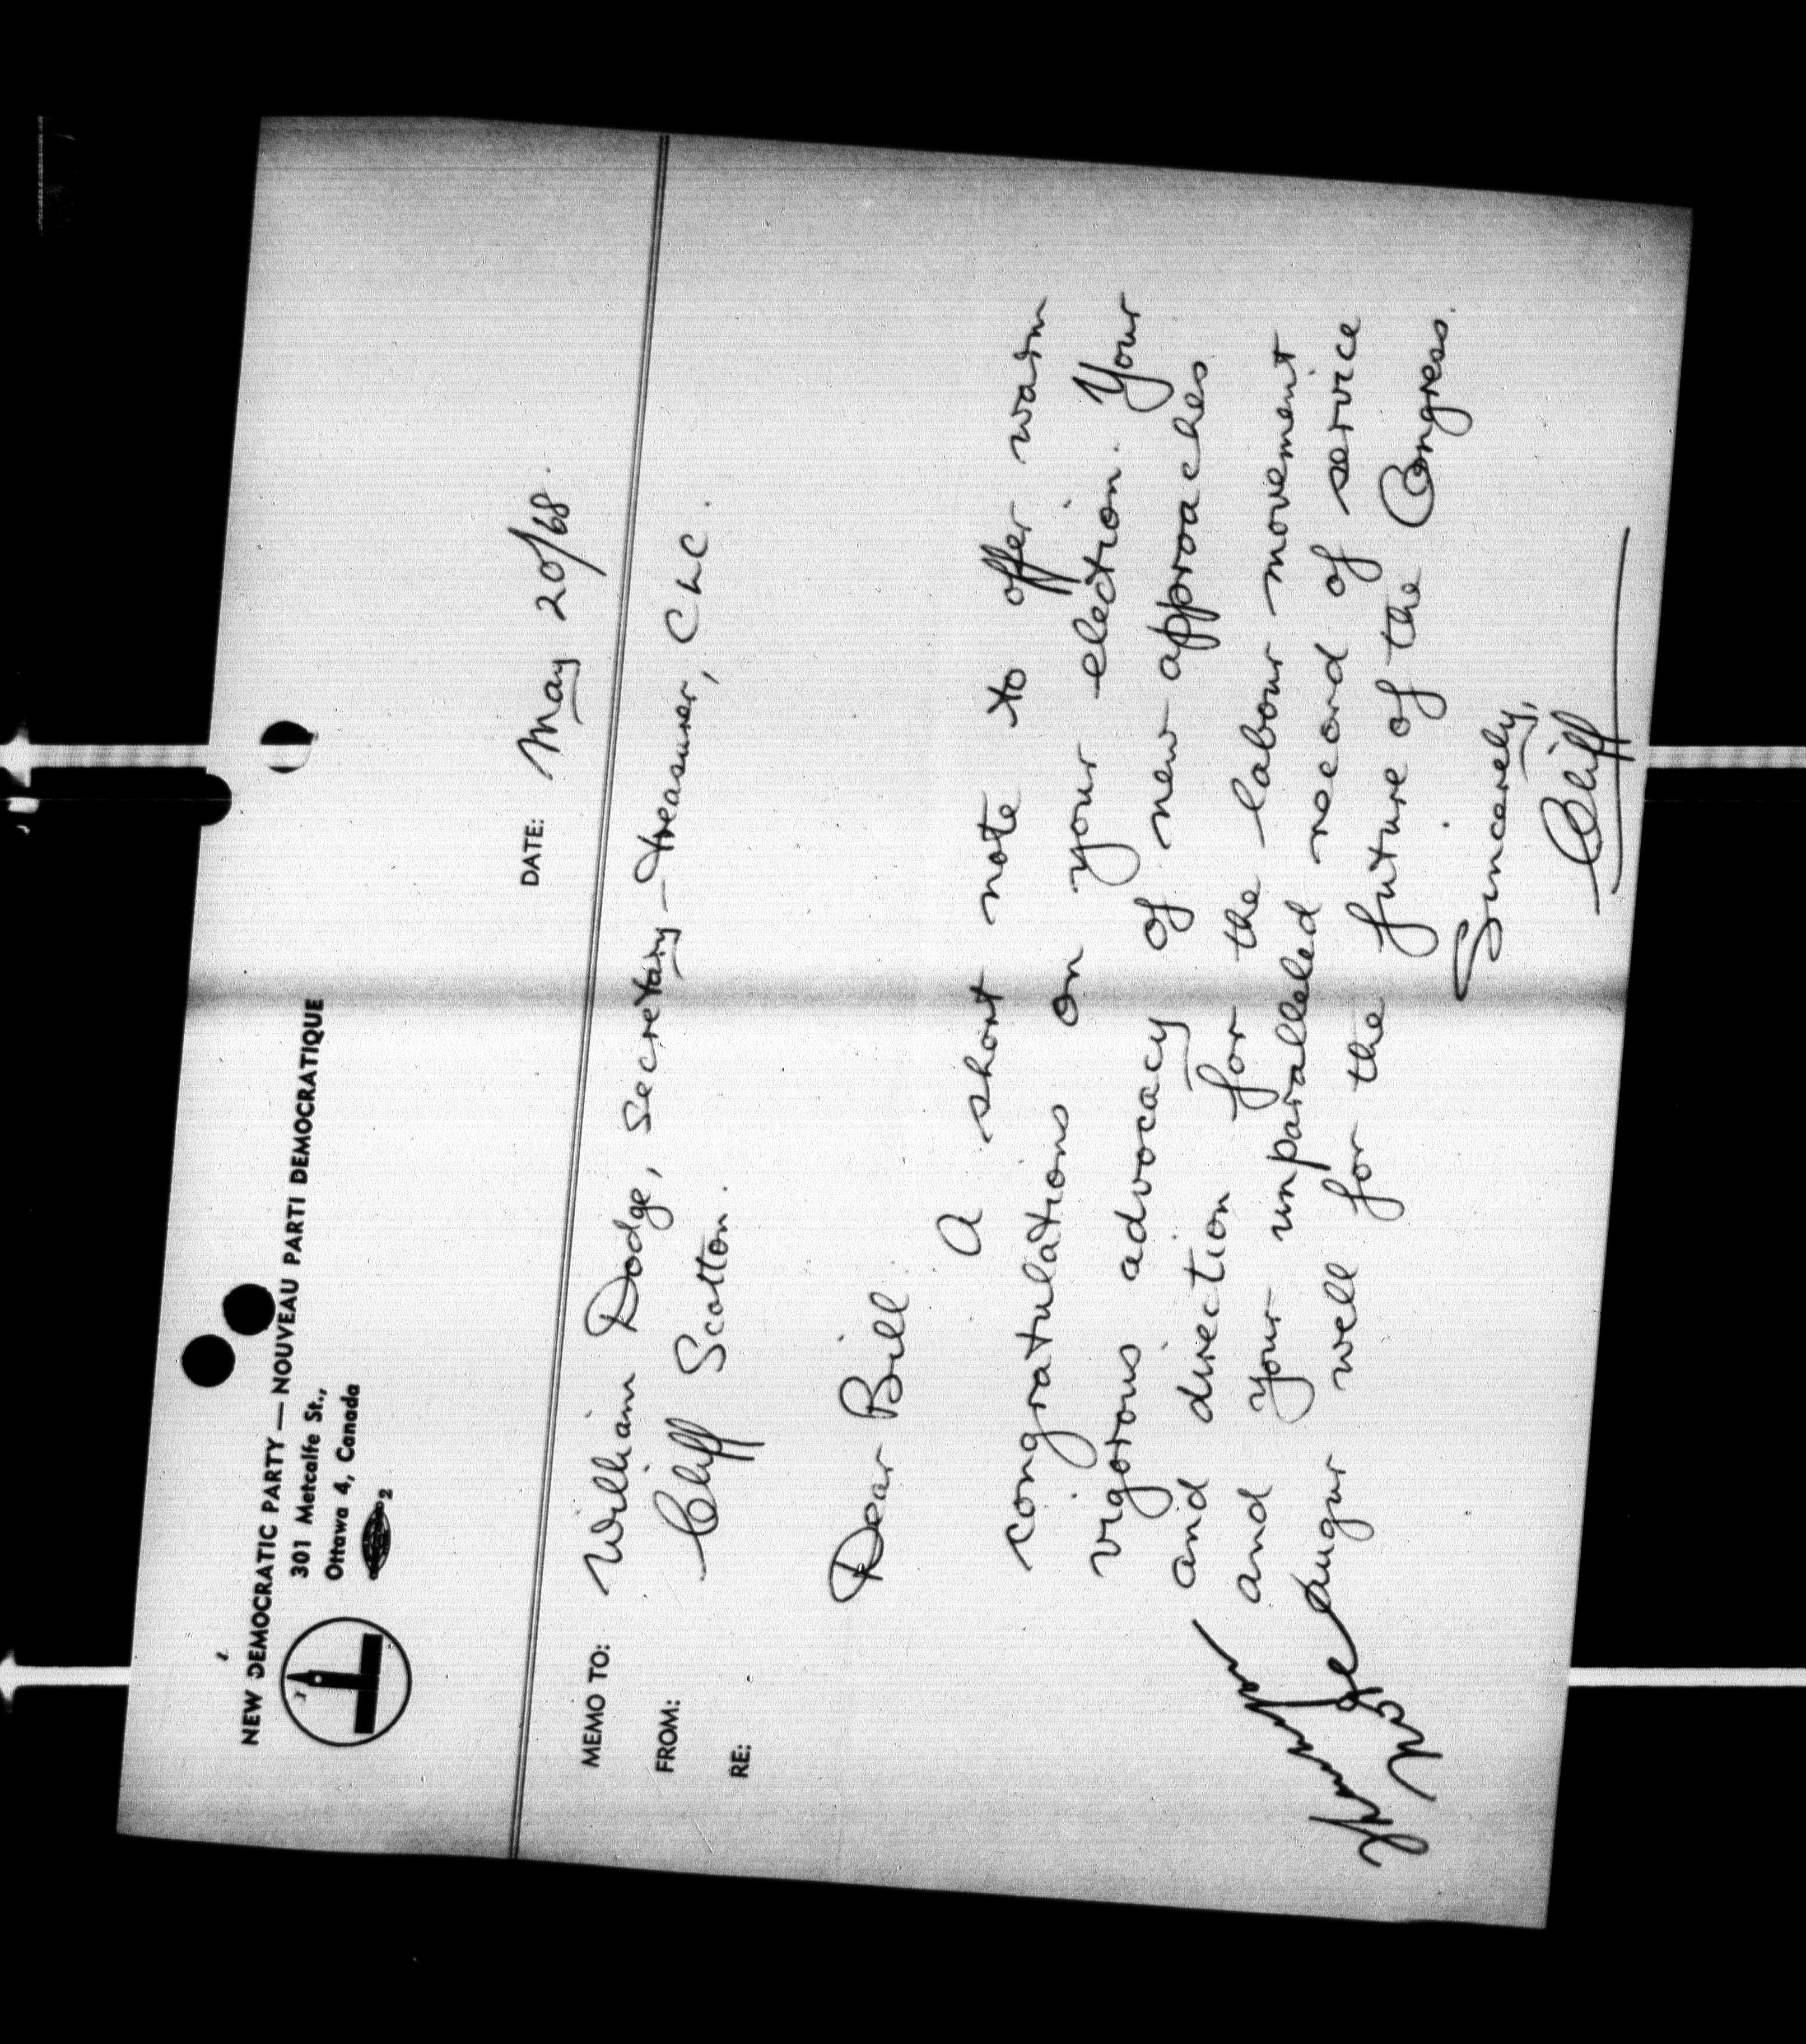 NEW DEMOCRATIC PARTY — NOUVEAU PARTI DEMOCRATIQUE
301 Metcalfe St.,
Ottawa 4, Canada
2
DATE: May 20/68.
MEMO TO: William Dodge, Secretary-treasurer, CLC.
FROM: Cliff Scotton.
RE:
Dear Bill.
A short note to offer warm
congratulations on your election. Your
vigorous advocacy of new approaches
and direction for the labour movement
and your unparalleled record of service
augur well for the future of the Congress.
Sincerely,
Cliff